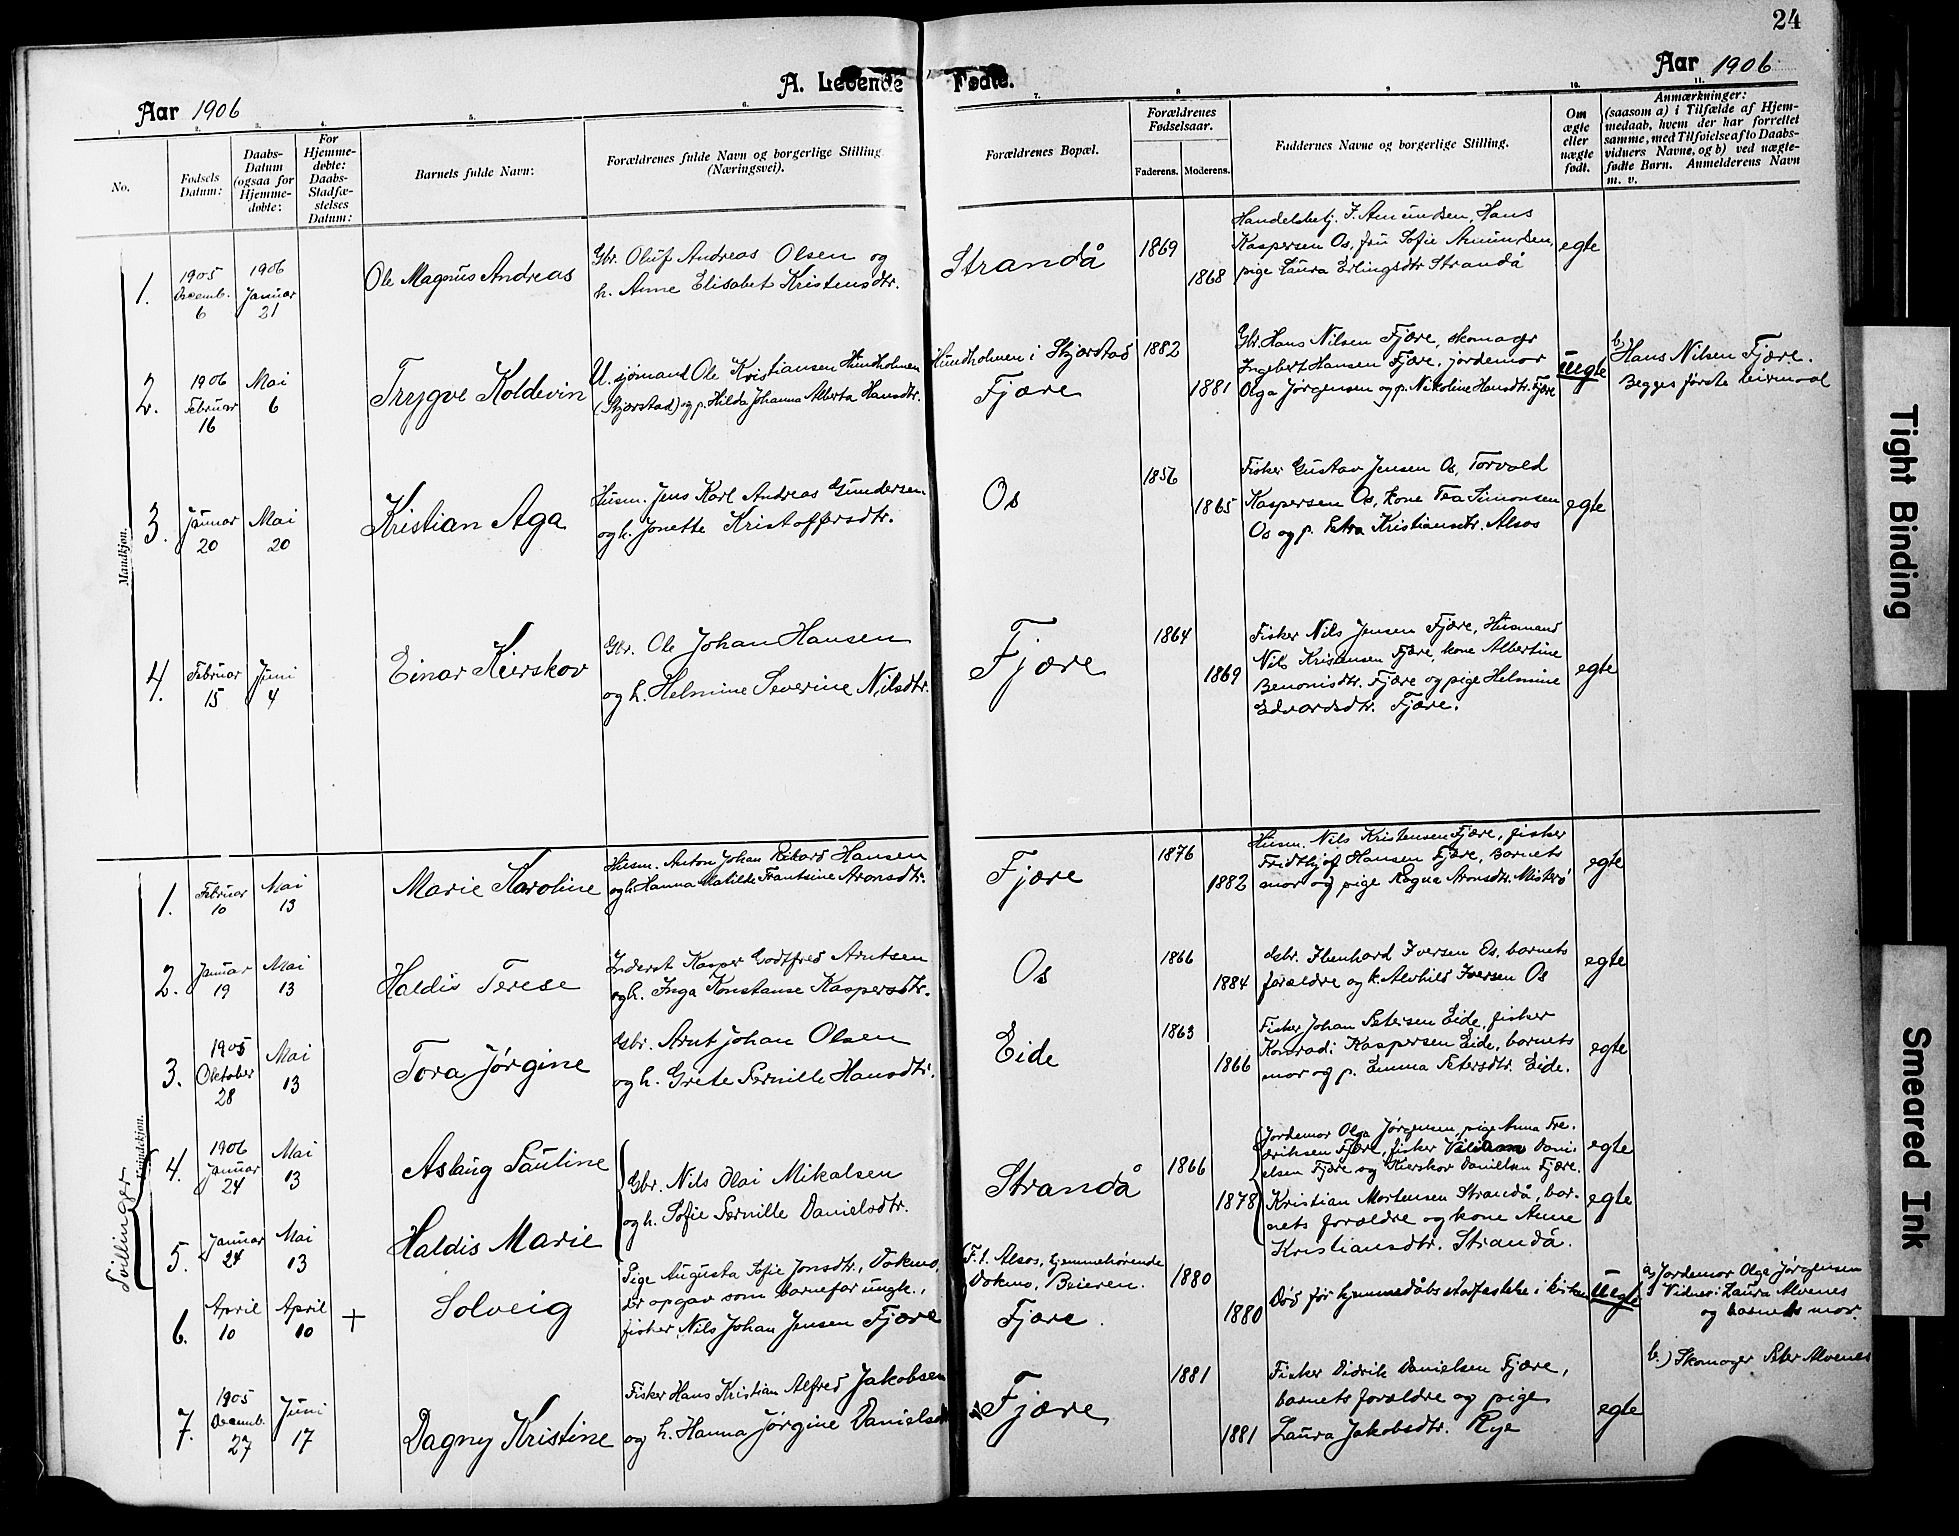 24
A. Levende Fødte.
Aar 1906
Aar 1906
1. 2. 3. 4. 5. 6. 7. 8 9. 10. 11.
No.
Fødsels Datum:
Daabs-Datum (ogsaa for Hjemme-døbte:
For Hjemme-døbte: Daabs-Stadfæ-stelses Datum:
Barnets fulde Navn:
Forældrenes fulde Navn og borgerlige Stilling (Næringsvei).
Forældrenes Bopæl.
Forældrenes Fødselsaar.
Faderens. Moderens.
Faddernes Navne og borgerlige Stilling.
Om ægte eller uægte født.
Anmærkninger:
(saasom a) i Tilfælde af Hjem-
medaab, hvem der har forrettet
samme, med Tilføielse af to Daabs-
vidners Navne, og b) ved uægte-
fødte Børn. Anmelderens Navn
m. v.
Mandkjøn.
1.
1905 Decemb. 6
1906 Januar 21
Ole Magnus Andreas
Gbr. Oluf Andreas Olsen og
h. Anne Elisabet Kristensdtr.
Strandå
1869
1868
Handelsbetj. J. Amundsen, Hans
Kaspersen Os, fru Sofie Amundsen,
pige Laura Erlingsdtr Strandå
egte
2.
1906 Februar 16
Mai 6
Trygve Koldevin
U. sjømand Ole Kristiansen Hundholmen
(Skjærstad) og p. Hilda Johanna Alberta Hansdtr.
Hundholmen i Skjærstad
Fjære
1882
1881
Gbr. Hans Nilsen Fjære, skomager
Ingebert Hansen Fjære, jordemor
Olga Jørgensen og p. Nikoline Hansdtr. Fjære
uegte
b) Hans Nilsen Fjære.
Begges første leiermaal
3.
Januar 20
Mai 20
Kristian Aga
Husm. Jens Karl Andreas Gundersen
og h. Jonette Kristoffersdtr.
Os
1856
1865
Fisker Gustav Jensen Os, Torvald
Kaspersen Os, kone Tea Simonsen
Os og p. Petra Kristiansdtr. Alsos
egte
4.
Februar 15
Juni 4
Einar Kierskov
Gbr. Ole Johan Hansen
og h. Helmine Severine Nilsdtr.
Fjære
1864
1869
Fisker Nils Jensen Fjære, Husmand
Nils Kristensen Fjære, kone Albertine
Benonisdtr. Fjære og pige Helmine
Edvardsdtr. Fjære.
egte
Kvindekjøn.
1.
Februar 10
Mai 13
Marie Karoline
Husm. Anton Johan Rikard Hansen
og h. Hanna Matilde Frantsine Aronsdtr.
Fjære
1876
1882
Husm. Nils Kristensen Fjære, fisker
Fridthjof Hansen Fjære, Barnets
mor og pige Ragna Aronsdtr. Misterø
egte
2.
Januar 19
Mai 13
Haldis Terese
Inderst Kasper Godtfred Arntsen
og h. Inga Konstanse Kaspersdtr.
Os
1866
1884
Gbr. Ebenhard Iversen Os, barnets
forældre og k. Alvhild Iversen Os
egte
3.
1905 Oktober 28
Mai 13
Tora Jørgine
Gbr. Arnt Johan Olsen
og h. Grete Pernille Hansdtr.
Eide
1863
1866
Fisker Johan Petersen Eide, fisker
Konradi Kaspersen Eide, barnets
mor og p. Emma Petersdtr. Eide.
egte
Tvillinger
4.
1906 Januar 24
Mai 13
Aslaug Pauline
5.
Januar 24
Mai 13
Haldis Marie
Gbr. Nils Olai Mikalsen
og h. Sofie Pernille Danielsdtr.
Strandå
1866
1878
Jordemor Olga Jørgensen, pige Anna Fre-
driksen Fjære, fisker Villiam Dani-
elsen Fjære og Kierskov Danielsen Fjære.
Kristian Mortensen Strandå, bar-
nets forældre og kone Anne
Kristiansdtr. Strandå.
egte
egte
6.
April 10
April 10
+
Solveig
Pige Augusta Sofie Jonsdtr., Dokmo,
der opgav som barnefar ungk.,
fisker Nils Johan Jensen Fjære
F.t. Alsos, hjemmehørende
Dokmo, Beieren.
Fjære.
1880
1880
Død før hjemmedåbs stadfæstelse i kirken
uegte
a) Jordemor Olga Jørgensen
Vidner: Laura Alvenes
og barnets mor.
b.) Skomager Peter Alvenes
7.
1905 Decemb. 27
Juni 17
Dagny Kristine
Fisker Hans Kristian Alfred Jakobsen
og h. Hanna Jørgine Danielsdtr
Fjære
1881
1881
Fisker Didrik Danielsen Fjære,
barnets forældre og pige
Laura Jakobsdtr. Rye
egte
Tight Binding
Smeared Ink